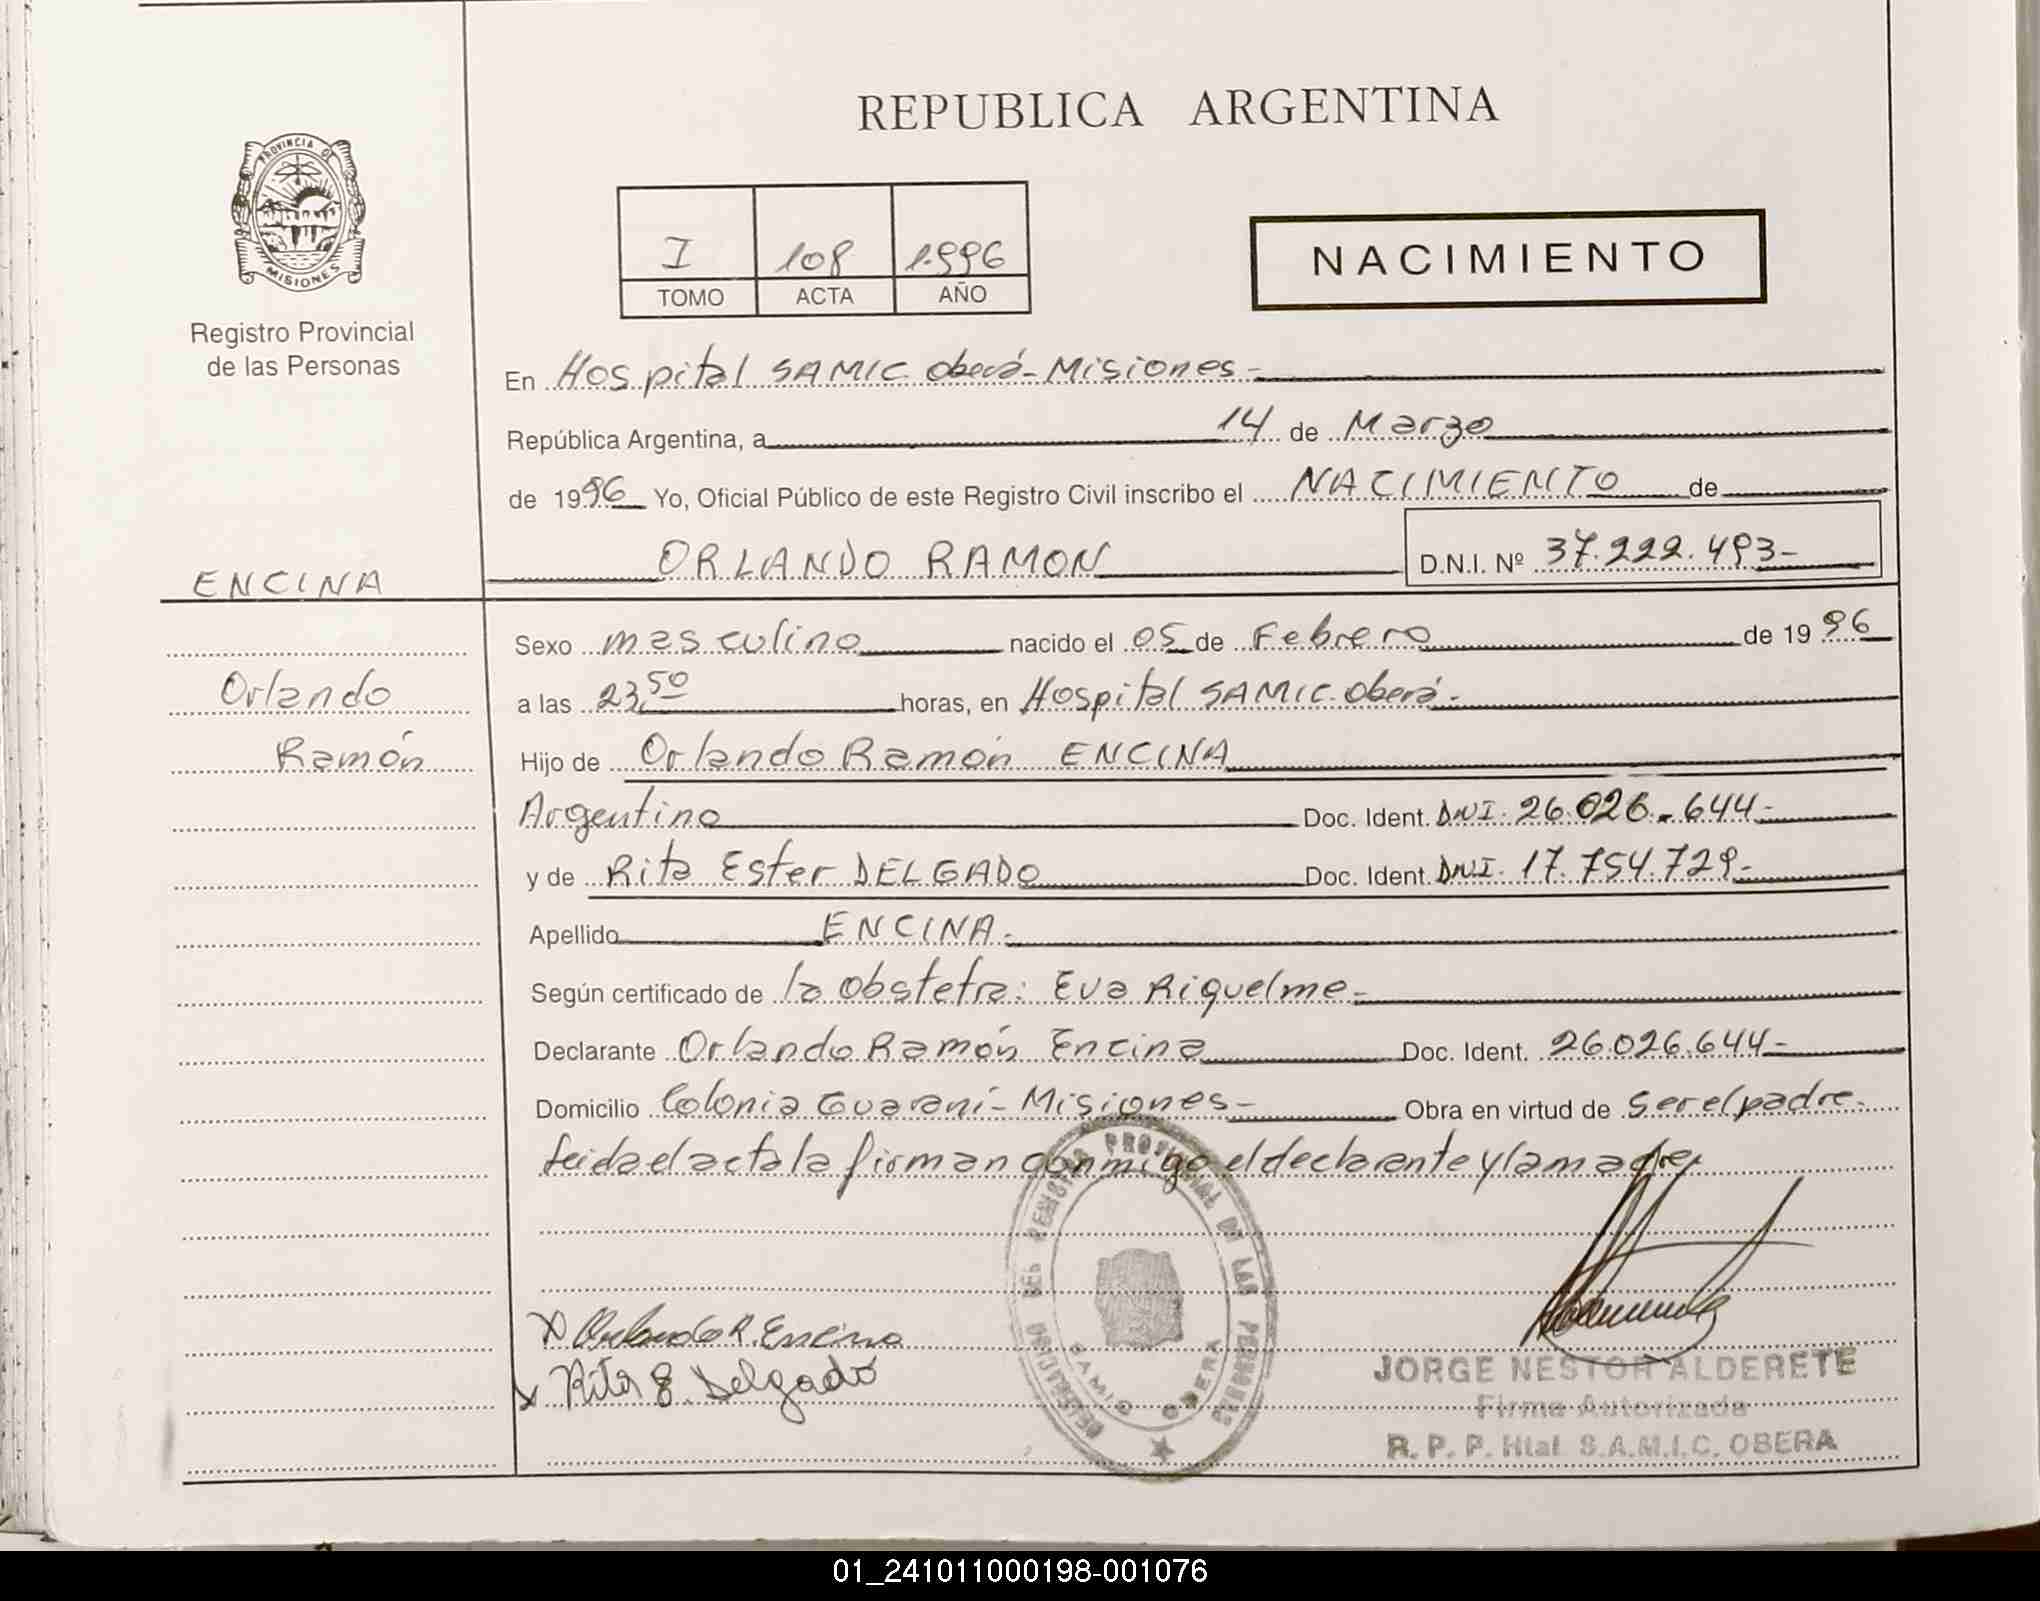 REPUBLICA ARGENTINA
PROVINCIA DE
MISIONES
Registro Provincial
de las Personas
I 108 1.996
TOMO ACTA AÑO
NACIMIENTO
En Hospital SAMIC Oberá - Misiones -
República Argentina, a 14 de Marzo
de 1996 Yo, Oficial Público de este Registro Civil inscribo el NACIMIENTO de
ORLANDO RAMON D.N.I. Nº 37.222.493-
ENCINA
Orlando
Ramón
Sexo masculino nacido el 05 de Febrero de 1996
a las 23,50 horas, en Hospital SAMIC. Oberá.-
Hijo de Orlando Ramón ENCINA
Argentino Doc. Ident. DNI. 26.026.644-
y de Rita Ester DELGADO Doc. Ident. DNI. 17.754.729-
Apellido ENCINA.-
Según certificado de la obstetra: Eva Riquelme.-
Declarante Orlando Ramón Encina Doc. Ident. 26.026.644-
Domicilio Colonia Guaraní - Misiones - Obra en virtud de ser el padre.
Leida el acta la firman conmigo el declarante y la madre
DELEGACION DEL REGISTRO PROVINCIAL DE LAS PERSONAS
SAMIC OBERA
x Orlando R. Encina
x Rita E. Delgado
JORGE NESTOR ALDERETE
Firma Autorizada
R. P. P. Htal S.A.M.I.C. OBERA
01_241011000198-001076